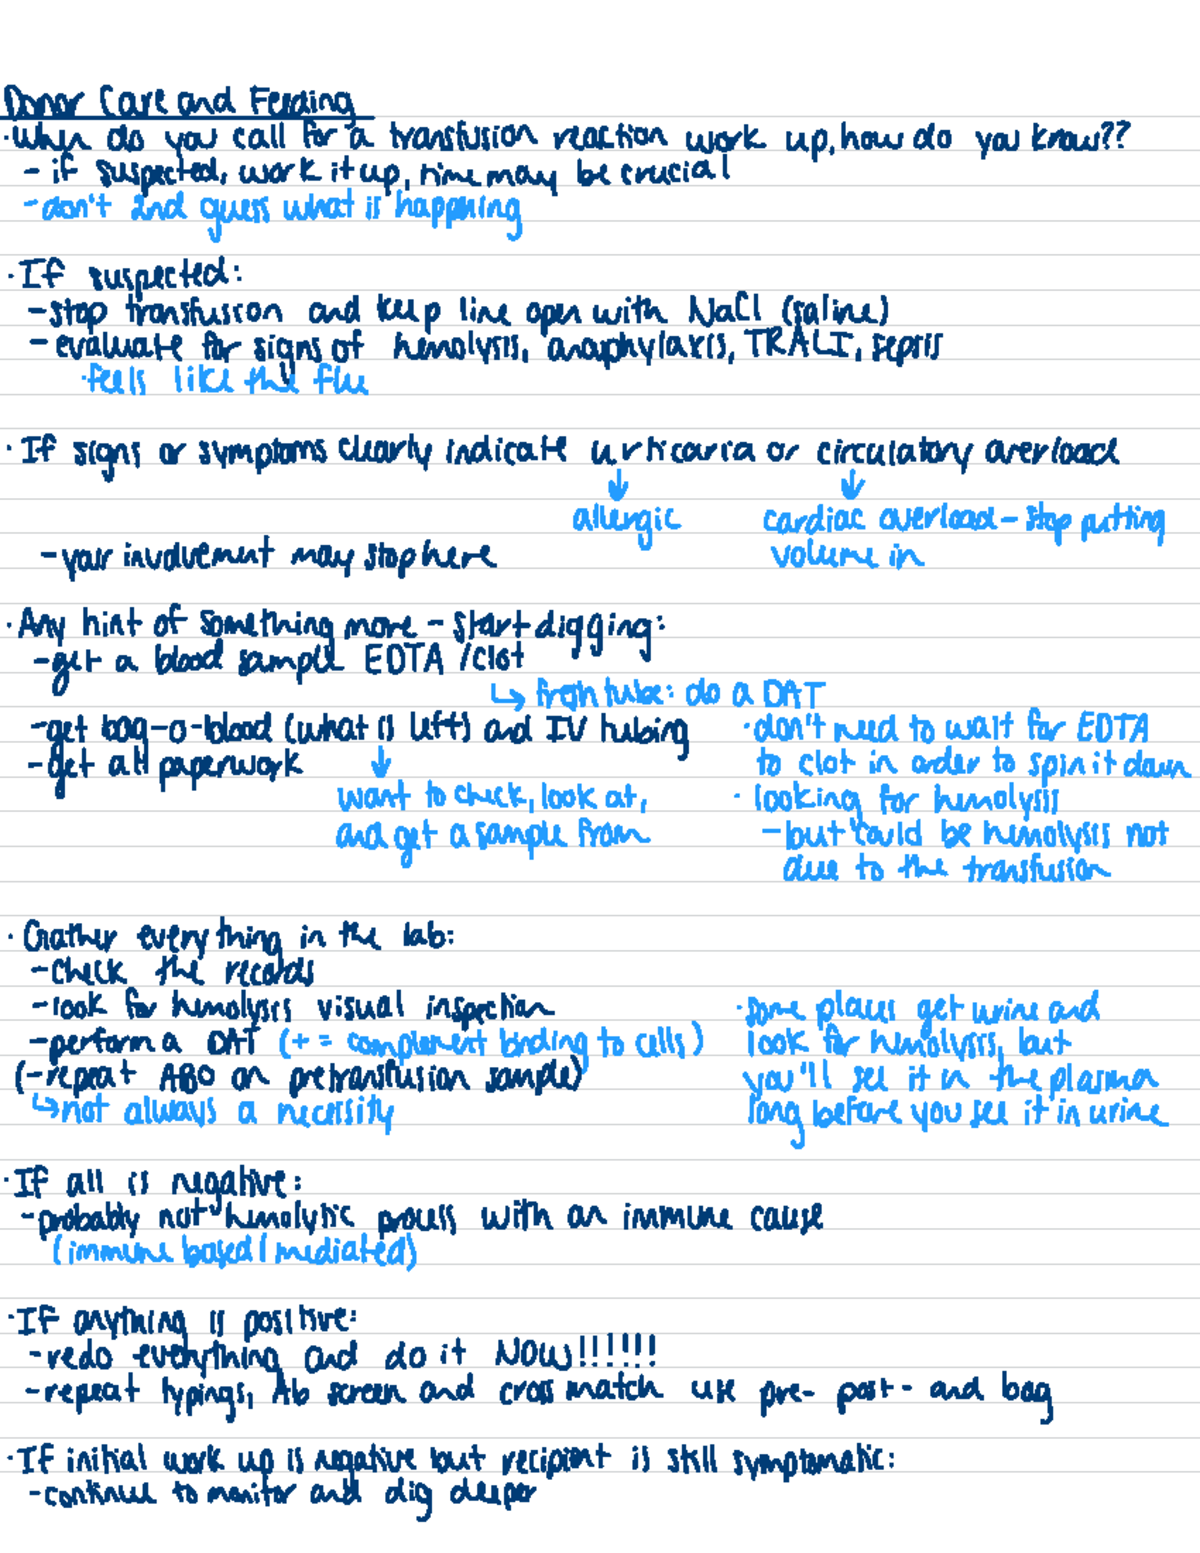 Donor Care and Feeding
·When do you call for a transfusion reaction work up, how do you know??
- if suspected, work it up, time may be crucial
-don't 2nd guess what is happening
·If suspected:
-stop transfusion and keep line open with NaCl (saline)
- evaluate for signs of hemolysis, anaphylaxis, TRALI, sepsis
·feels like the flu
·If signs or symptoms clearly indicate urticaria or circulatory overload
↓ ↓
allergic cardiac overload - stop putting
volume in
-your involvement may stop here
·Any hint of something more - start digging:
-get a blood sample EDTA /clot
↳ fresh tube: do a DAT
-get bag-o-blood (what is left) and IV tubing
-get all paperwork
↓
want to check, look at,
and get a sample from
·don't need to wait for EDTA
to clot in order to spin it down
· looking for hemolysis
-but could be hemolysis not
due to the transfusion
· Gather everything in the lab:
-check the records
-look for hemolysis visual inspection
-perform a DAT (+ = complement binding to cells)
(-repeat ABO on pretransfusion sample)
↳not always a necessity
·some places get urine and
look for hemolysis, but
you'll see it in the plasma
long before you see it in urine
·If all is negative:
-probably not hemolytic process with an immune cause
(immune based/mediated)
·If anything is positive:
-redo everything and do it NOW!!!!!!
-repeat typings, Ab screen and crossmatch use pre- post- and bag
·If initial work up is negative but recipient is still symptomatic:
-continue to monitor and dig deeper